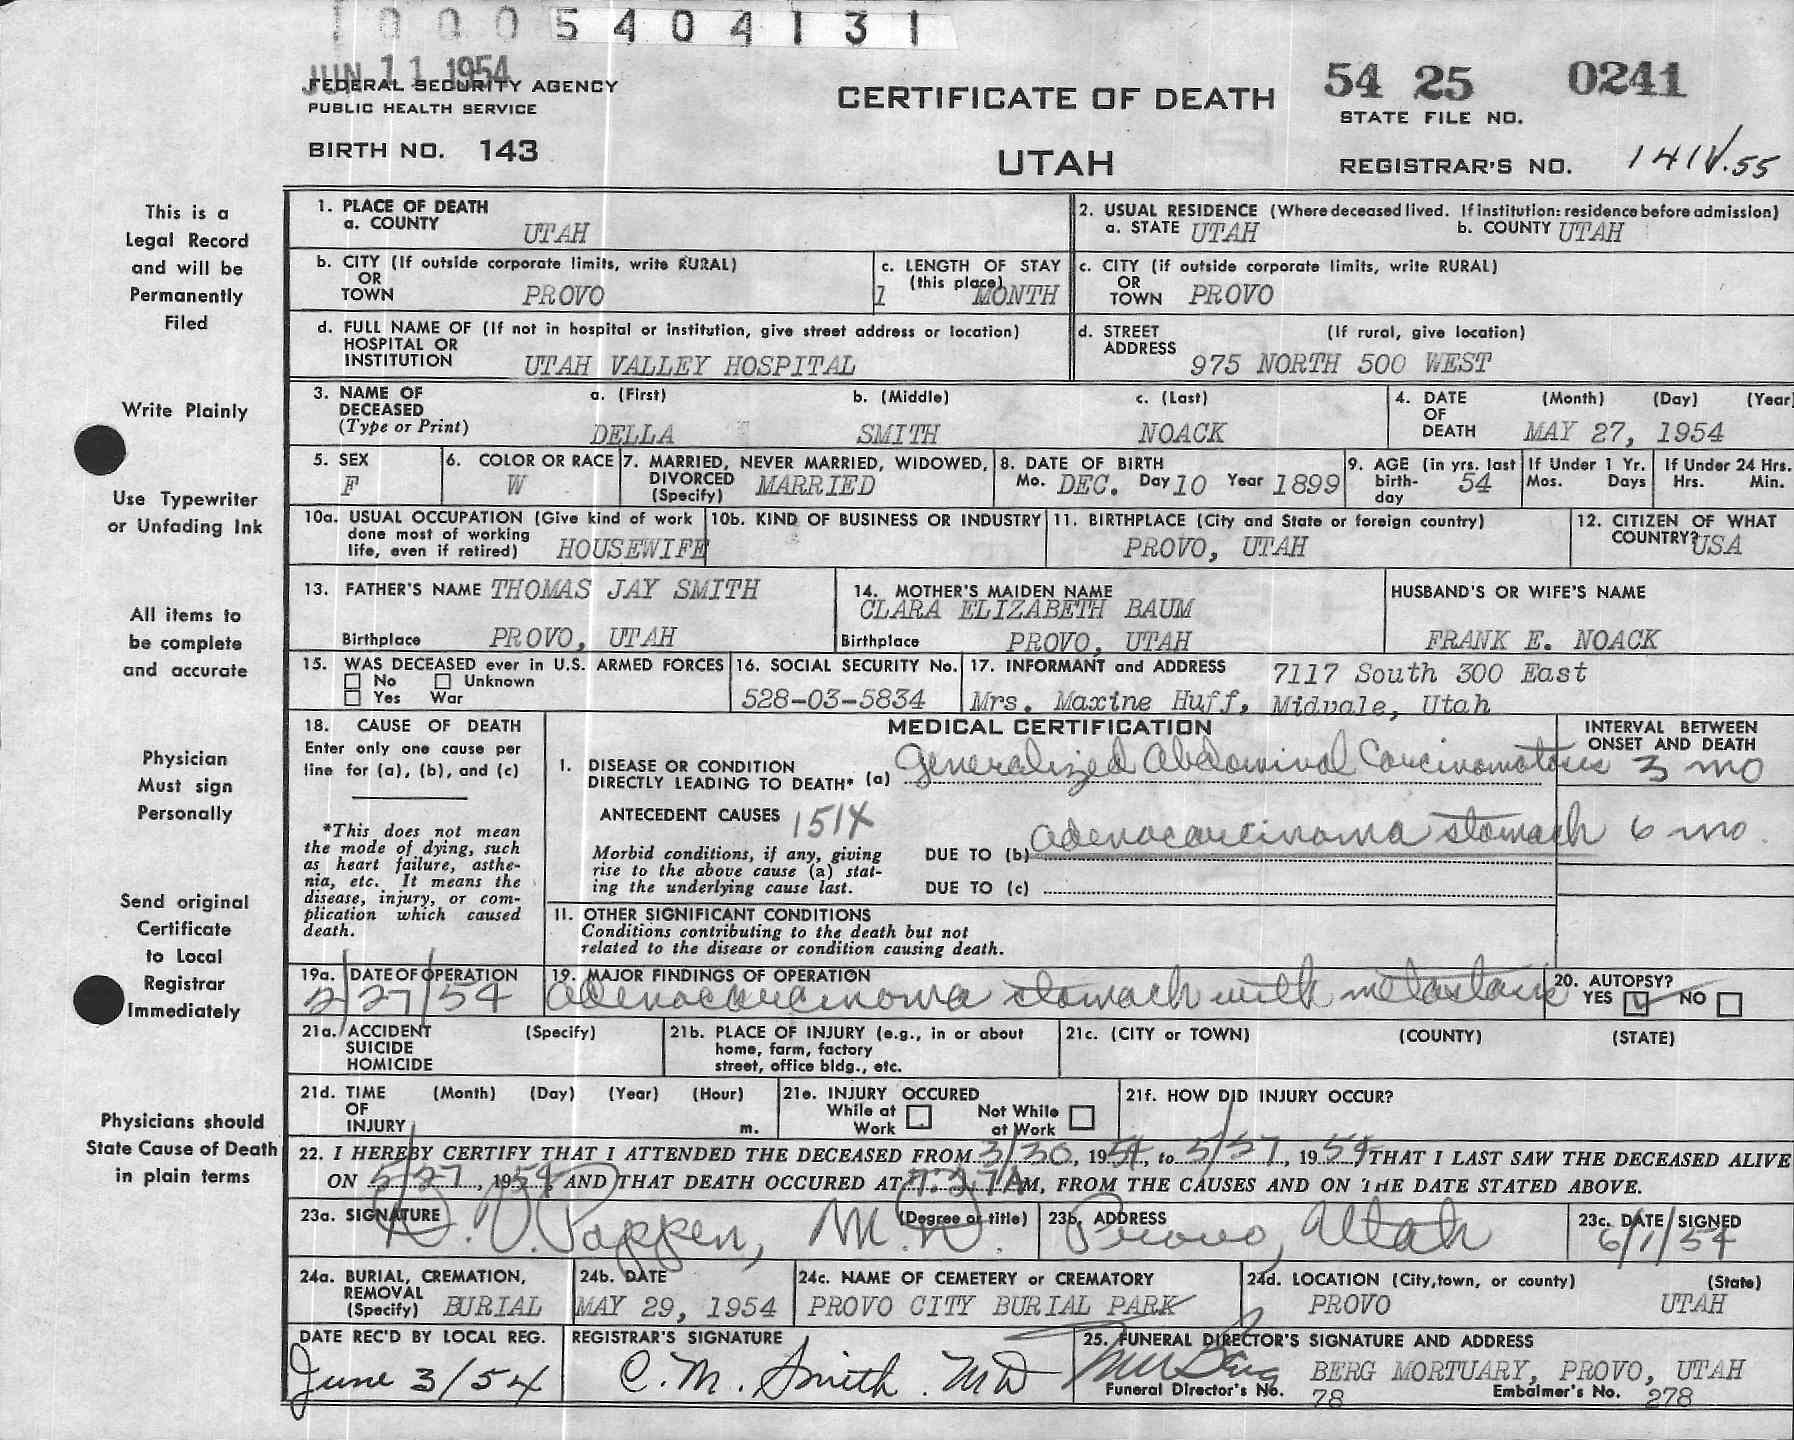 10005404131
JUN 11 1954
FEDERAL SECURITY AGENCY
PUBLIC HEALTH SERVICE
BIRTH NO. 143
CERTIFICATE OF DEATH
UTAH
54 25 0241
STATE FILE NO.
REGISTRAR'S NO. 141V.55
This is a
Legal Record
and will be
Permanently
Filed
Write Plainly
Use Typewriter
or Unfading Ink
All items to
be complete
and accurate
Physician
Must sign
Personally
Send original
Certificate
to Local
Registrar
Immediately
Physicians should
State Cause of Death
in plain terms
1. PLACE OF DEATH
a. COUNTY UTAH
2. USUAL RESIDENCE (Where deceased lived. If institution: residence before admission)
a. STATE UTAH b. COUNTY UTAH
b. CITY (If outside corporate limits, write RURAL)
OR
TOWN PROVO
c. LENGTH OF STAY
(this place)
1 MONTH
c. CITY (if outside corporate limits, write RURAL)
OR
TOWN PROVO
d. FULL NAME OF (If not in hospital or institution, give street address or location)
HOSPITAL OR
INSTITUTION UTAH VALLEY HOSPITAL
d. STREET (If rural, give location)
ADDRESS 975 NORTH 500 WEST
3. NAME OF a. (First) b. (Middle) c. (Last)
DECEASED
(Type or Print) DELLA SMITH NOACK
4. DATE (Month) (Day) (Year)
OF
DEATH MAY 27, 1954
5. SEX
F
6. COLOR OR RACE
W
7. MARRIED, NEVER MARRIED, WIDOWED,
DIVORCED
(Specify) MARRIED
8. DATE OF BIRTH
Mo. DEC. Day 10 Year 1899
9. AGE (in yrs. last
birth-
day 54
If Under 1 Yr.
Mos. Days
If Under 24 Hrs.
Hrs. Min.
10a. USUAL OCCUPATION (Give kind of work
done most of working
life, even if retired) HOUSEWIFE
10b. KIND OF BUSINESS OR INDUSTRY
11. BIRTHPLACE (City and State or foreign country)
PROVO, UTAH
12. CITIZEN OF WHAT
COUNTRY? USA
13. FATHER'S NAME THOMAS JAY SMITH
Birthplace PROVO, UTAH
14. MOTHER'S MAIDEN NAME
CLARA ELIZABETH BAUM
Birthplace PROVO, UTAH
HUSBAND'S OR WIFE'S NAME
FRANK E. NOACK
15. WAS DECEASED ever in U.S. ARMED FORCES
No Unknown
Yes War
16. SOCIAL SECURITY No.
528-03-5834
17. INFORMANT and ADDRESS 7117 South 300 East
Mrs. Maxine Huff, Midvale, Utah
18. CAUSE OF DEATH
Enter only one cause per
line for (a), (b), and (c)
*This does not mean
the mode of dying, such
as heart failure, asthe-
nia, etc. It means the
disease, injury, or com-
plication which caused
death.
MEDICAL CERTIFICATION
INTERVAL BETWEEN
ONSET AND DEATH
I. DISEASE OR CONDITION
DIRECTLY LEADING TO DEATH* (a) Generalized Abdominal Carcinomatosis 3 mo
ANTECEDENT CAUSES 151X
Morbid conditions, if any, giving
rise to the above cause (a) stat-
ing the underlying cause last.
DUE TO (b) adenocarcinoma stomach 6 mo.
DUE TO (c)
II. OTHER SIGNIFICANT CONDITIONS
Conditions contributing to the death but not
related to the disease or condition causing death.
19a. DATE OF OPERATION
2/27/54
19. MAJOR FINDINGS OF OPERATION
adenocarcinoma stomach with metastasis
20. AUTOPSY?
YES NO
21a. ACCIDENT (Specify)
SUICIDE
HOMICIDE
21b. PLACE OF INJURY (e.g., in or about
home, farm, factory
street, office bldg., etc.
21c. (CITY or TOWN) (COUNTY) (STATE)
21d. TIME (Month) (Day) (Year) (Hour)
OF
INJURY m.
21e. INJURY OCCURED
While at Work
Not While at Work
21f. HOW DID INJURY OCCUR?
22. I HEREBY CERTIFY THAT I ATTENDED THE DECEASED FROM 3/30, 1954, to 5/27, 1954 THAT I LAST SAW THE DECEASED ALIVE
ON 5/27, 1954 AND THAT DEATH OCCURED AT 7:27A M, FROM THE CAUSES AND ON THE DATE STATED ABOVE.
23a. SIGNATURE (Degree or title)
Pappen, M.D.
23b. ADDRESS
Provo, Utah
23c. DATE SIGNED
6/1/54
24a. BURIAL, CREMATION,
REMOVAL
(Specify) BURIAL
24b. DATE
MAY 29, 1954
24c. NAME OF CEMETERY or CREMATORY
PROVO CITY BURIAL PARK
24d. LOCATION (City, town, or county) (State)
PROVO UTAH
DATE REC'D BY LOCAL REG.
June 3/54
REGISTRAR'S SIGNATURE
C. M. Smith. MD
25. FUNERAL DIRECTOR'S SIGNATURE AND ADDRESS
BERG MORTUARY, PROVO, UTAH
Funeral Director's No. 78 Embalmer's No. 278